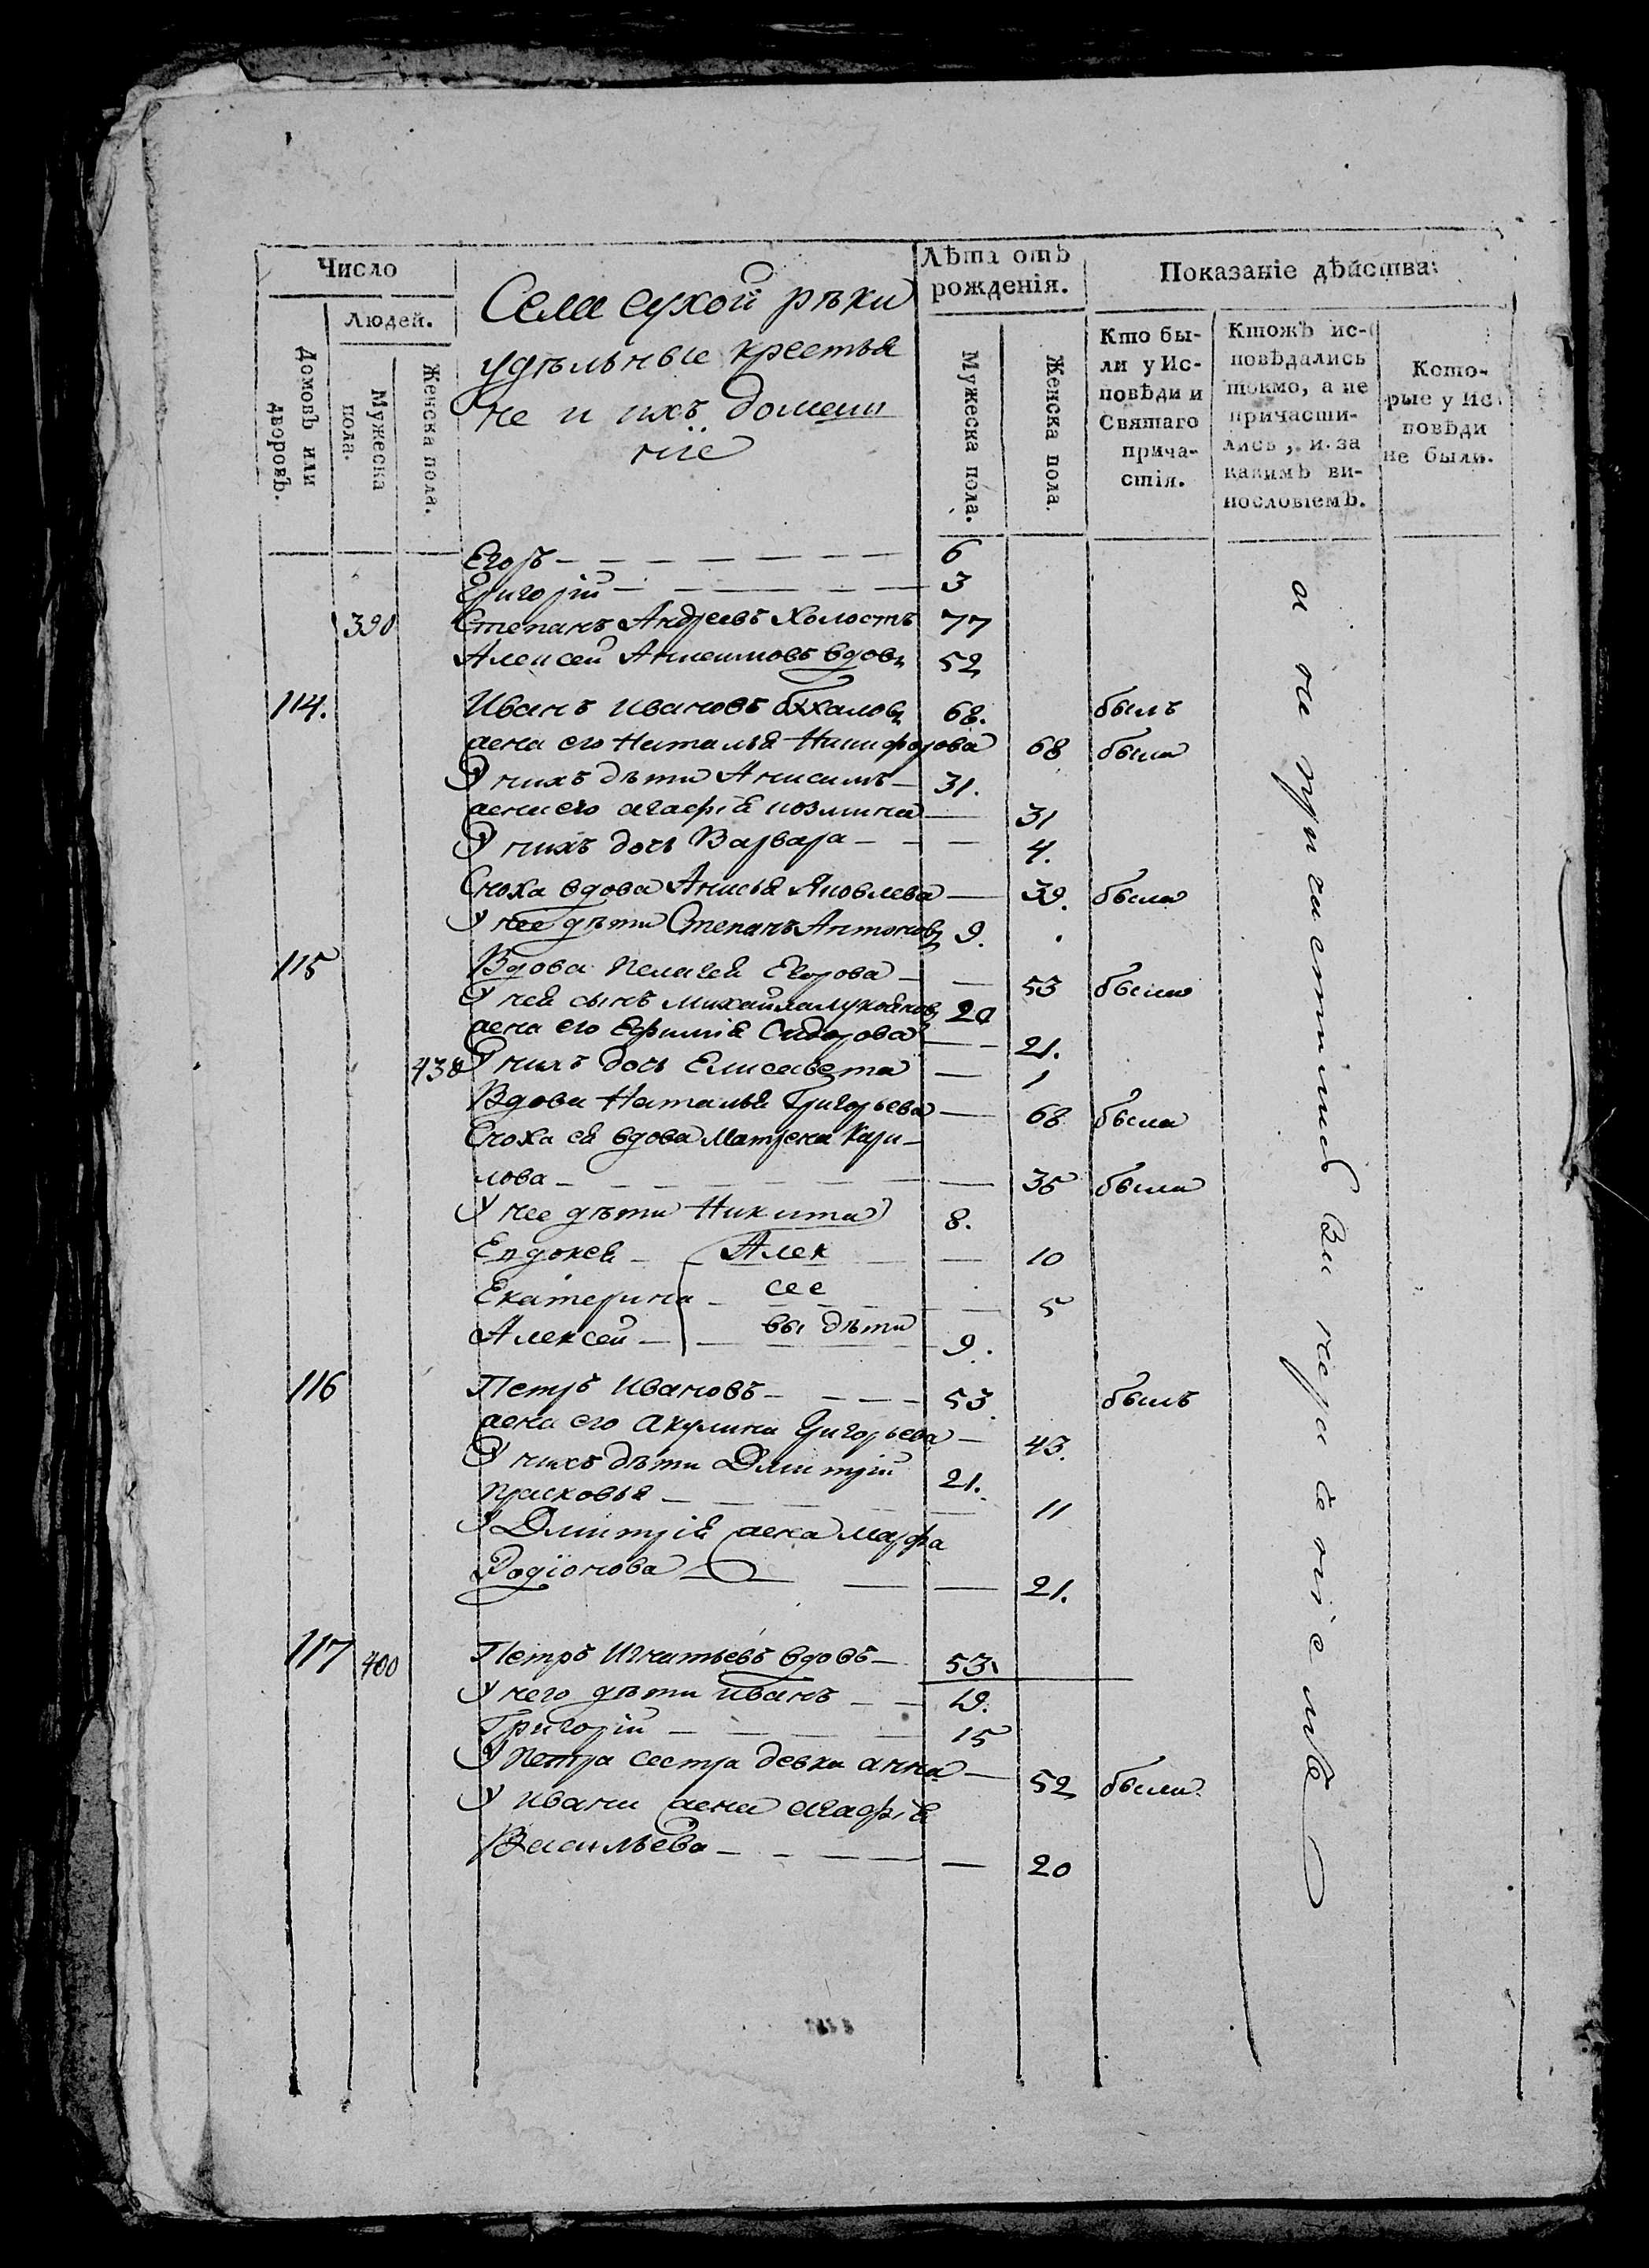 Число
Людей.
Домовъ или дворовъ.
Мужеска пола.
Женска пола.
Села сухой рѣки
удѣльные крестья
не и ихъ домаш
ніе
Лѣта отъ
рожденія.
Мужеска пола.
Женска пола.
Показаніе дѣйства
Кто бы-
ли у Ис-
повѣди и
Святаго
прича-
стія.
Ктожъ ис-
повѣдались
токмо, а не
причасти-
лись, и за
какимъ ви-
нословіемъ.
Кото-
рые у Ис
повѣди
не были.
Егоръ — 6
Григорій — 3
390 Степанъ Андреевъ холостъ 77
Алексей вдовъ 52
114. Иванъ Ивановъ 68. былъ
жена его Наталья Никифорова 68 была
У нихъ дѣти Анисимъ — 31.
жена его агафія козмина — 31
У нихъ дочь Варвара — 4.
Сноха вдова Анисья Яковлева — 39. была
У нее дѣти Степанъ Антоновъ 9.
115 Вдова Пелагея Егорова — 53 была
У ней сынъ Михайла 20
жена его Ефимія Сидорова — 21.
438 У нихъ дочь Елисавета — 1
Вдова Наталья Григорьева — 68 была
Сноха ея вдова Матрена Кири-
лова — 35 была
У нее дѣти Никита 8.
Евдокея — Алек — 10
Екатерина — сее — 5
Алексей — вы дѣти 9.
116 Петръ Ивановъ — 53. былъ
жена его Акулина Григорьева — 43.
У нихъ дѣти Дмитрій 21.
Прасковья — 11
У Дмитрія жена Марфа
Родіонова — 21.
117 400 Петръ Игнатьевъ вдовъ — 53
У него дѣти Иванъ — 19.
Григорій — 15
У Петра сестра девка анна — 52 была
У Ивана жена агафія
Васильева — 20
а не причастились за нераденіемъ